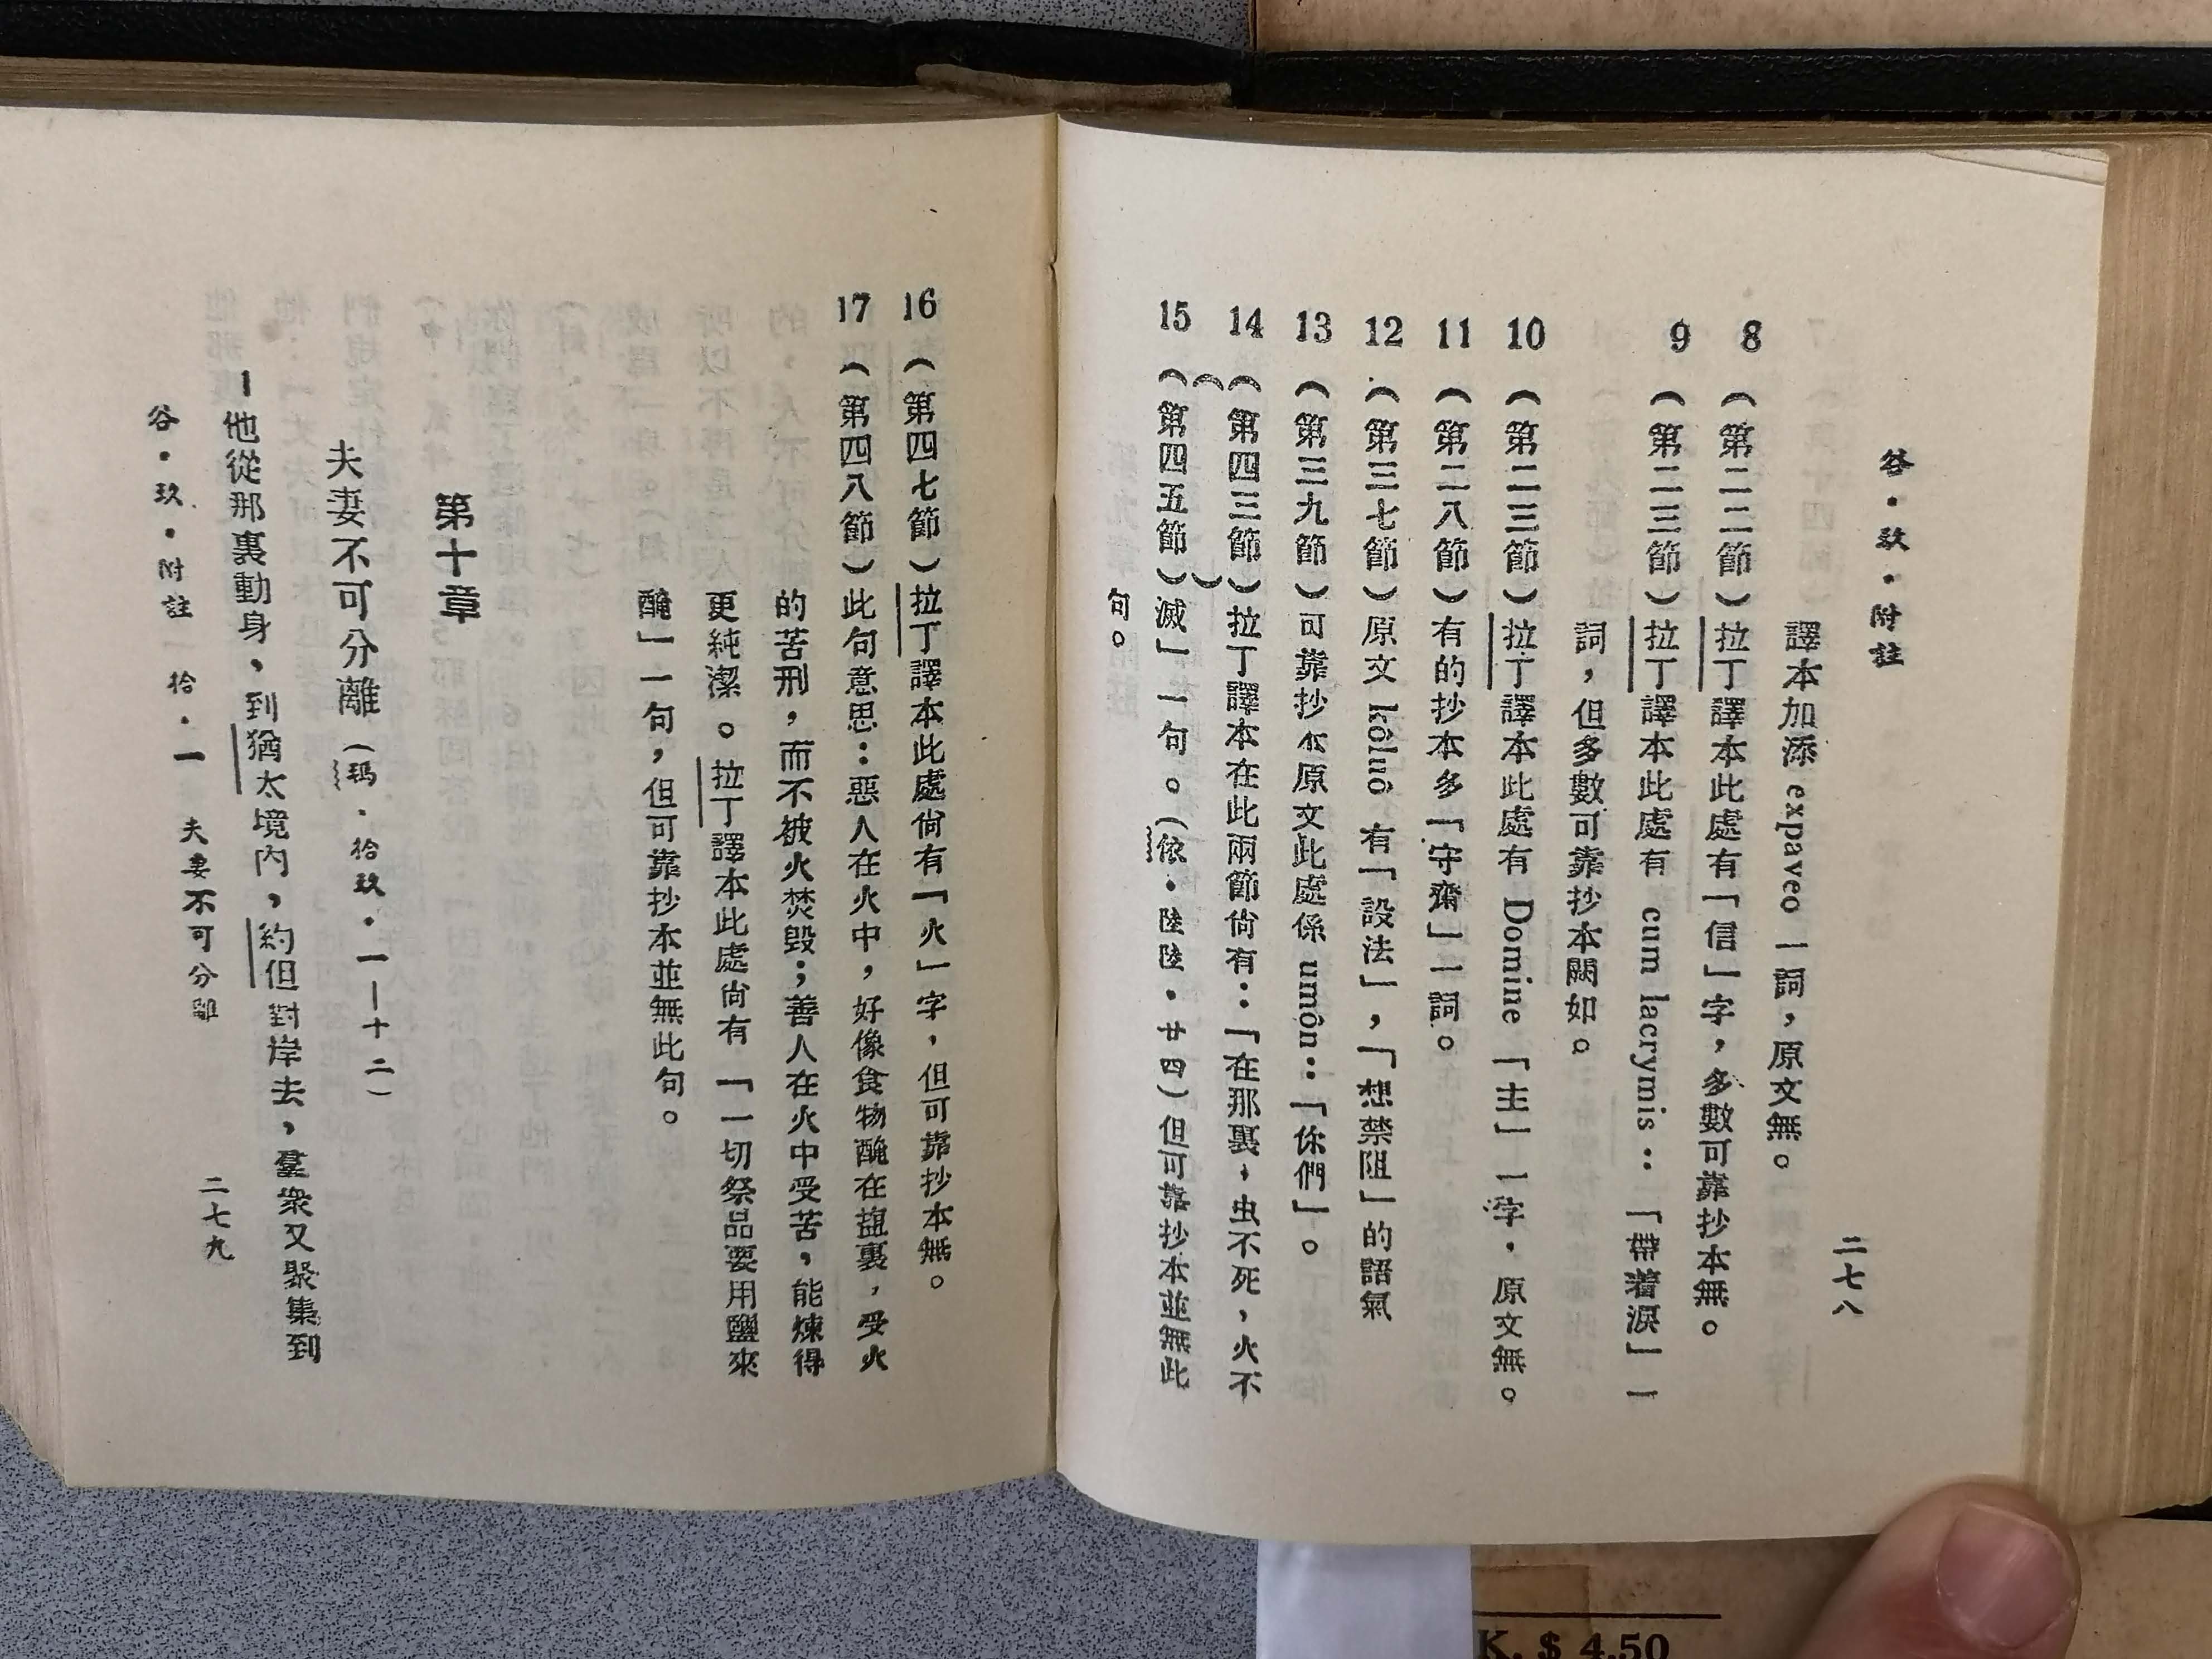 谷・玖・附註
二七八
譯本加添 expaveo 一詞，原文無。
8 （第二二節）拉丁譯本此處有「信」字，多數可靠抄本無。
9 （第二三節）拉丁譯本此處有 cum lacrymis：「帶着淚」一
詞，但多數可靠抄本闕如。
10 （第二三節）拉丁譯本此處有 Domine 「主」一字，原文無。
11 （第二八節）有的抄本多「守齋」一詞。
12 （第三七節）原文 kôluô 有「設法」，「想禁阻」的語氣
13 （第三九節）可靠抄本原文此處係 umôn：「你們」。
14 （第四三節）拉丁譯本在此兩節尙有：「在那裏，虫不死，火不
15 （第四五節）滅」一句。（依・陸陸・廿四）但可靠抄本並無此
句。
16 （第四七節）拉丁譯本此處尙有「火」字，但可靠抄本無。
17 （第四八節）此句意思：惡人在火中，好像食物醃在鹽裏，受火
的苦刑，而不被火焚毀；善人在火中受苦，能煉得
更純潔。拉丁譯本此處尙有「一切祭品要用鹽來
醃」一句，但可靠抄本並無此句。
第十章
夫妻不可分離（瑪・拾玖・一—十二）
1他從那裏動身，到猶太境內，約但對岸去，羣衆又聚集到
谷・玖・附註 拾・一 夫妻不可分離
二七九
K. $ 4.50